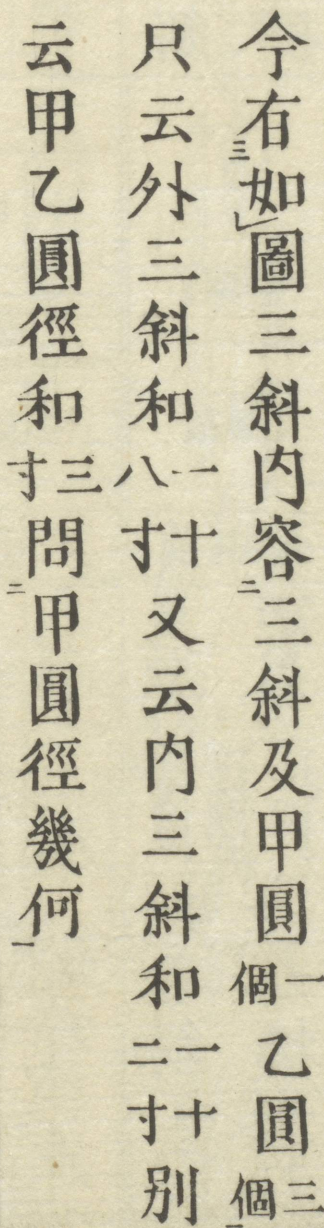 今右三如レ圖三斜内容二三斜及甲圓一個乙圓三個
只云外三斜和一十八寸又云内三斜和一十二寸別
云甲乙圓徑和三寸問二甲圓徑幾何一